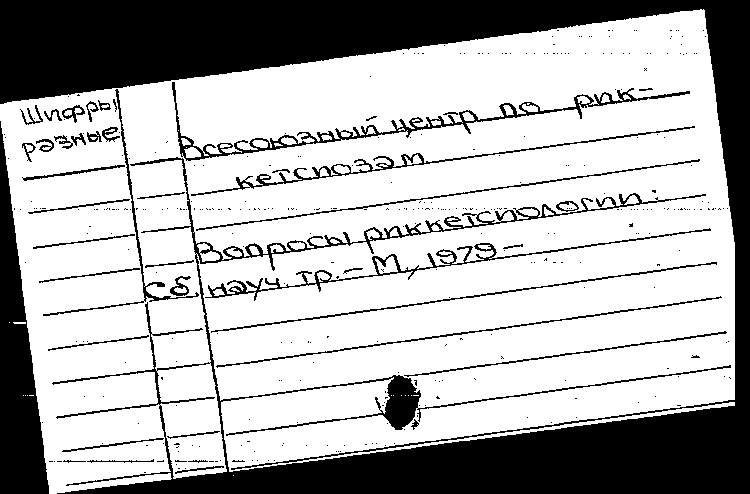 Шифры
разные
Всесоюзный центр по рик-
кетсиозам
Вопросы риккетсиологии:
Сб. науч. тр. – М., 1979 –